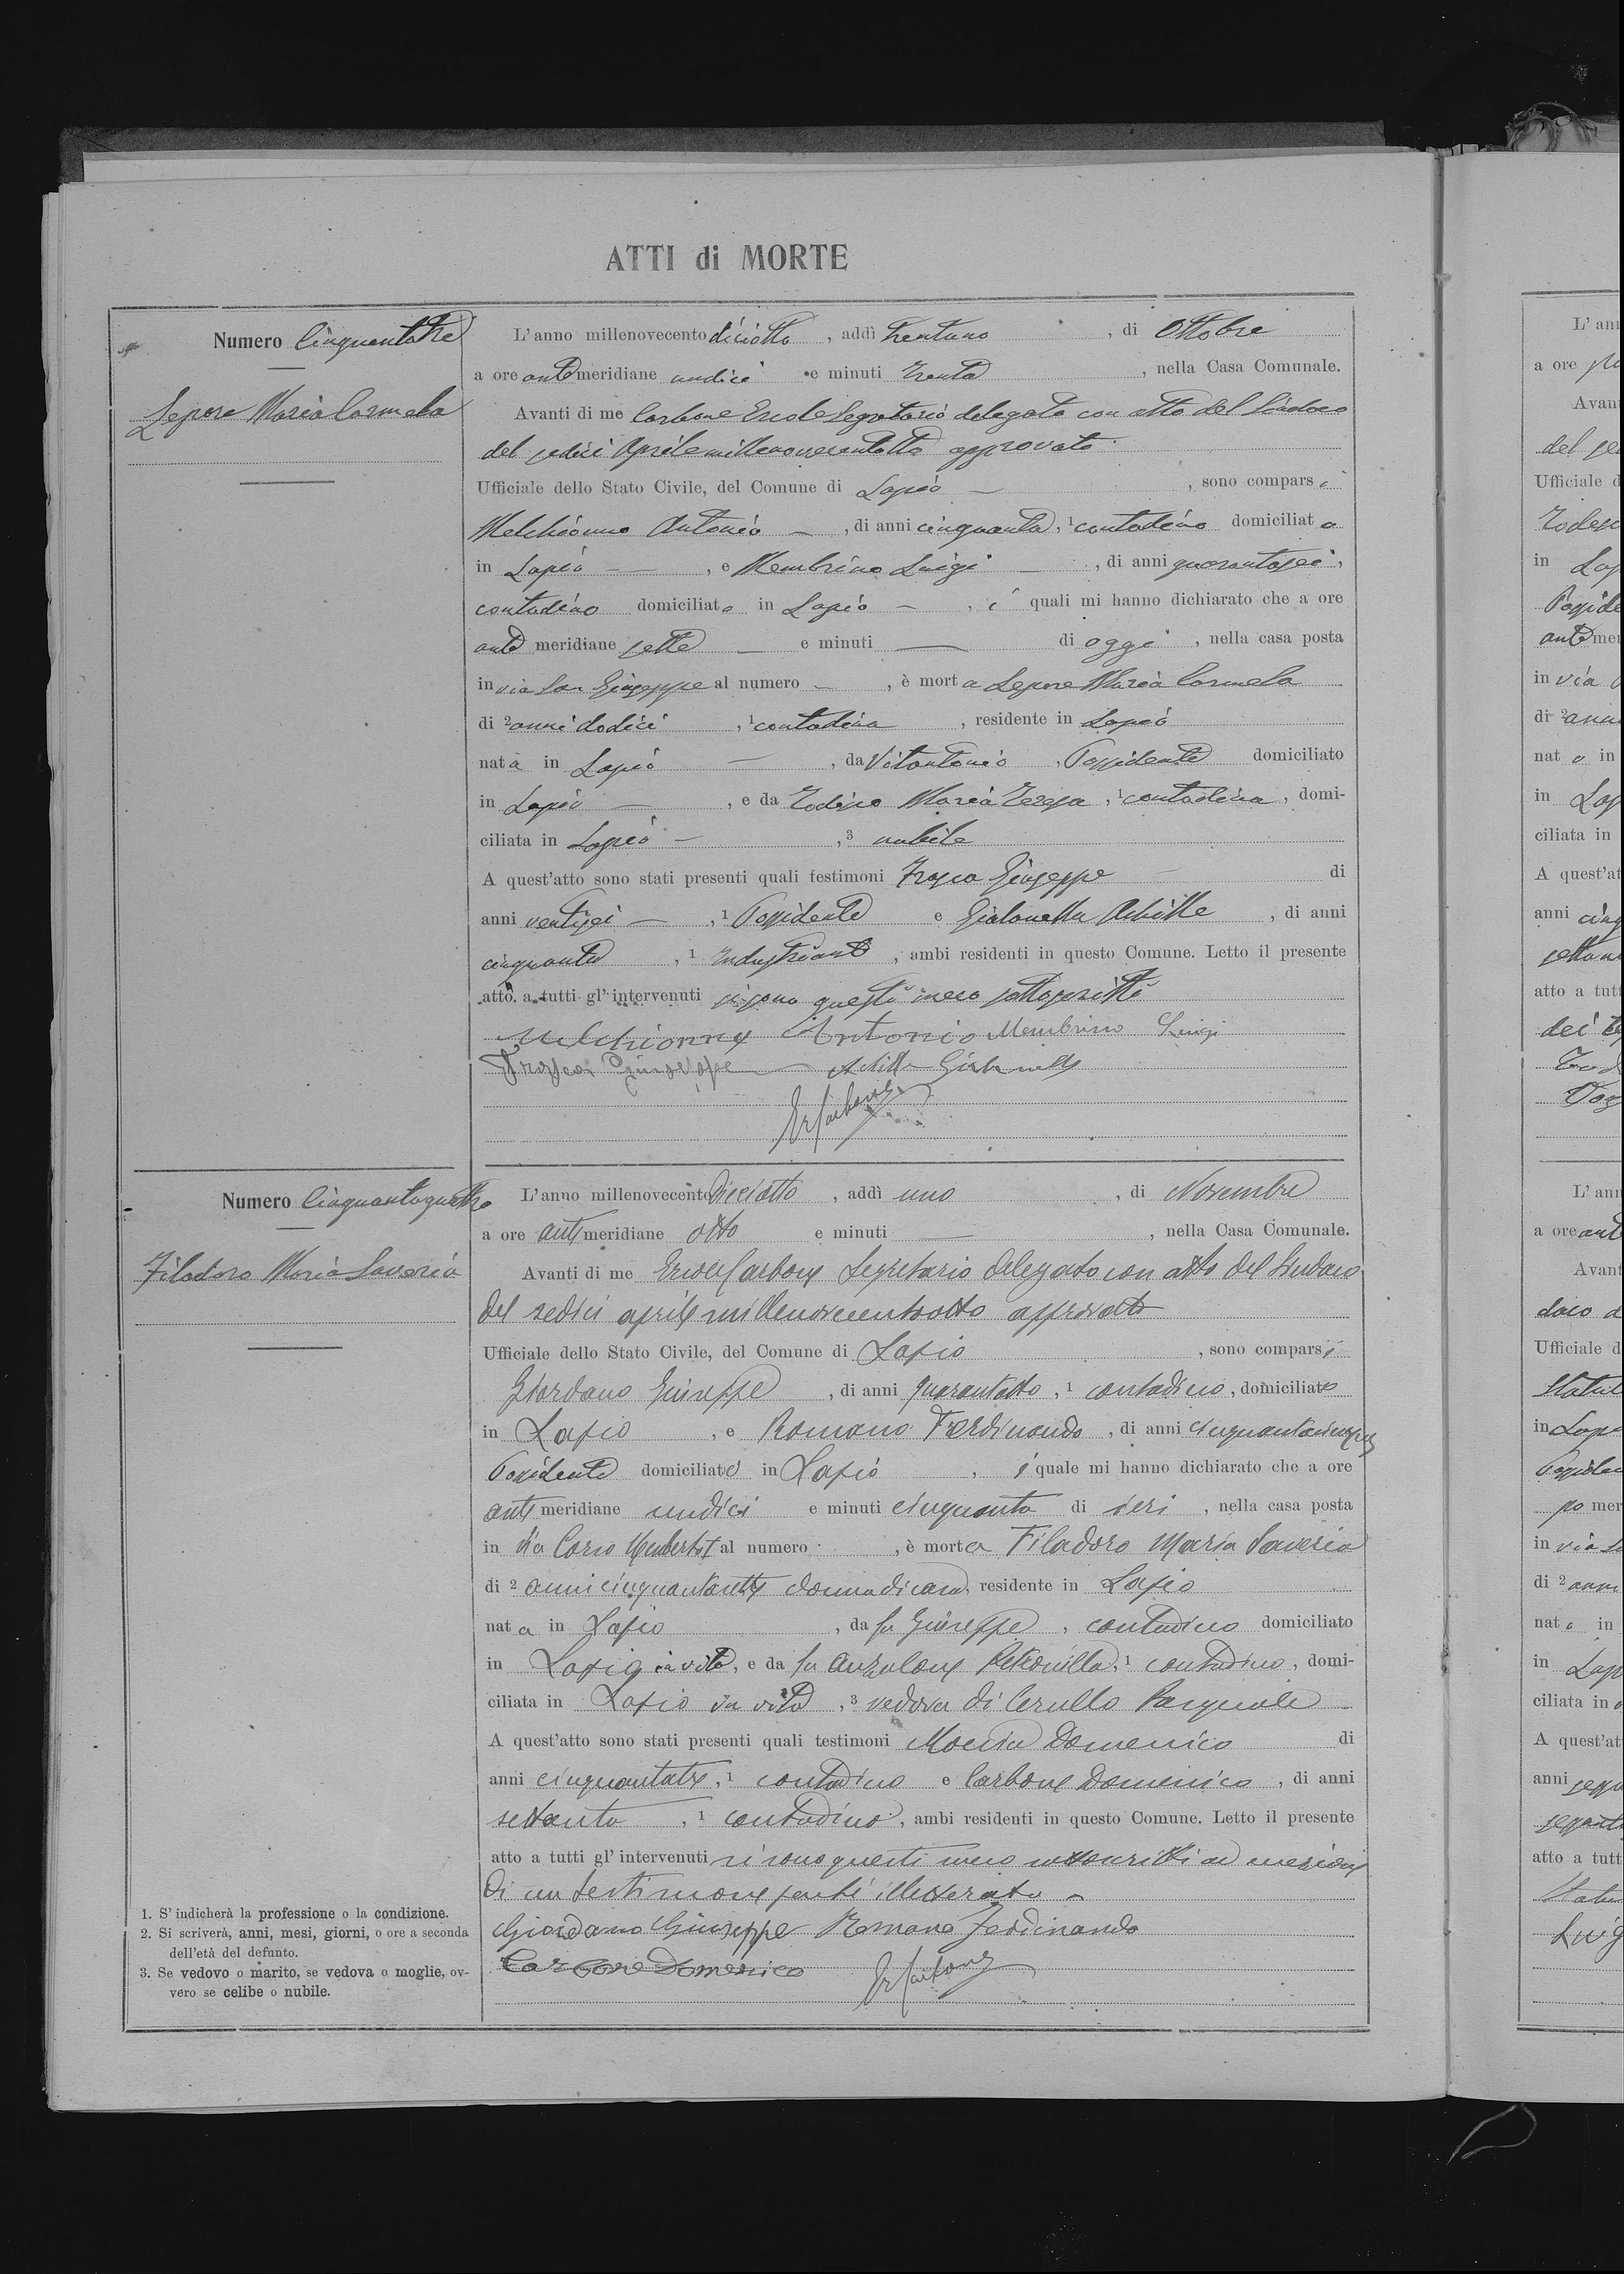 ATTI di MORTE
Numero Cinquantatre
Lepore Maria Carmela
L'anno millenovecento diciotto, addì trentuno, di Ottobre
a ore antimeridiane undici e minuti trenta, nella Casa Comunale.
Avanti di me Carbone Ercole Segretario delegato con atto del Sindaco
del sedici Aprile millenovecentotto approvato
Ufficiale dello Stato Civile, del Comune di Lapio, sono comparsi
Melchionno Antonio, di anni cinquanta, 1 contadino domiciliato
in Lapio, e Membrino Luigi, di anni quarantasei,
contadino domiciliato in Lapio, i quali mi hanno dichiarato che a ore
ante meridiane sette e minuti — di oggi, nella casa posta
in via San Giuseppe al numero —, è morta Lepore Maria Carmela
di 2 anni dodici, 1 contadina, residente in Lapio
nata in Lapio, da Vitantonio, Possidente domiciliato
in Lapio, e da Todisco Maria Teresa, 1 contadina, domi-
ciliata in Lapio, 3 nubile
A quest'atto sono stati presenti quali testimoni Frasca Giuseppe di
anni ventisei, 1 Possidente e Gialonella Achille, di anni
cinquanta, 1 Industriante, ambi residenti in questo Comune. Letto il presente
atto a tutti gl'intervenuti si sono questi meco sottoscritti
Melchionno Antonio Membrino Luigi
Frasca Giuseppe Achille Gialonella
Er Carbone
Numero Cinquantaquattro
Filadoro Maria Saveria
L'anno millenovecento Diciotto, addì uno, di Novembre
a ore anti meridiane otto e minuti —, nella Casa Comunale.
Avanti di me Ercole Carbone Segretario delegato con atto del Sindaco
del sedici aprile millenovecentootto approvato
Ufficiale dello Stato Civile, del Comune di Lapio, sono comparsi
Giordano Giuseppe, di anni quarantotto, 1 contadino, domiciliato
in Lapio, e Romano Ferdinando, di anni cinquantacinque
Possidente domiciliato in Lapio, i quale mi hanno dichiarato che a ore
anti meridiane undici e minuti cinquanta di ieri, nella casa posta
in via Corso Umberto I al numero, è morta Filadoro Maria Saveria
di 2 anni cinquantasette donna di casa, residente in Lapio
nata in Lapio, da fu Giuseppe, contadino domiciliato
in Lapio in vita, e da fu Anzalone Petronilla, 1 contadino, domi-
ciliata in Lapio in vita, 3 vedova di Cerullo Pasquale
A quest'atto sono stati presenti quali testimoni Moccia Domenico di
anni cinquantatre, 1 contadino e Carbone Domenico, di anni
settanta, 1 contadino, ambi residenti in questo Comune. Letto il presente
atto a tutti gl'intervenuti si sono questi meco sottoscritti ad eccezione
di un testimone perché illetterato
Giordano Giuseppe Romano Ferdinando
Carbone Domenico Er Carbone
1. S'indicherà la professione o la condizione.
2. Si scriverà, anni, mesi, giorni, o ore a seconda
dell'età del defunto.
3. Se vedovo o marito, se vedova o moglie, ov-
vero se celibe o nubile.